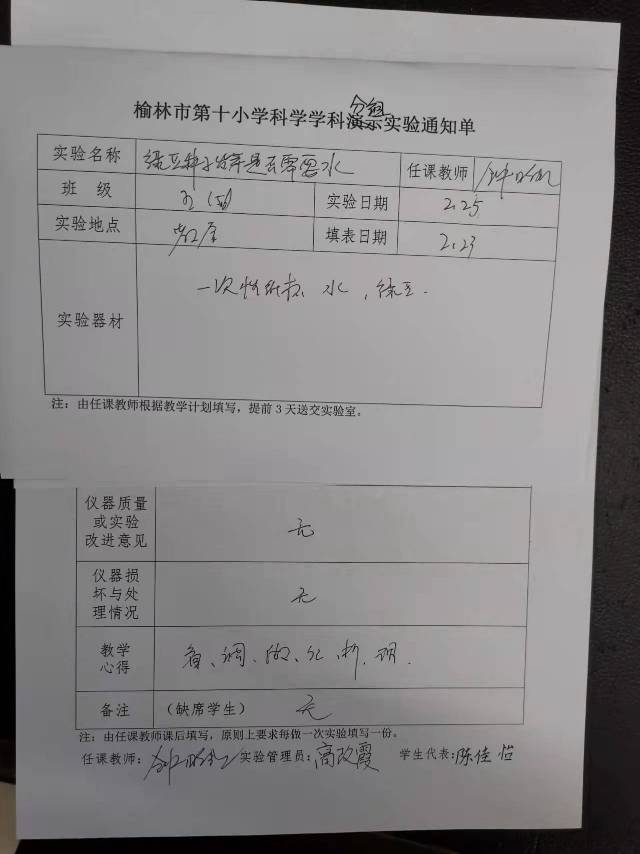 榆林市第十小学科学学科演示分组实验通知单
实验名称 绿豆种子发芽是否需要水 任课教师
班 级 五(四) 实验日期 2.25
实验地点 教室 填表日期 2.23
实验器材 一次性纸杯、水,绿豆.
注:由任课教师根据教学计划填写,提前3天送交实验室。
仪器质量
或实验
改进意见 无
仪器损
坏与处
理情况 无
教学
心得
备注 (缺席学生) 无
注:由任课教师课后填写,原则上要求每做一次实验填写一份。
任课教师: 实验管理员:高改霞 学生代表:陈佳怡